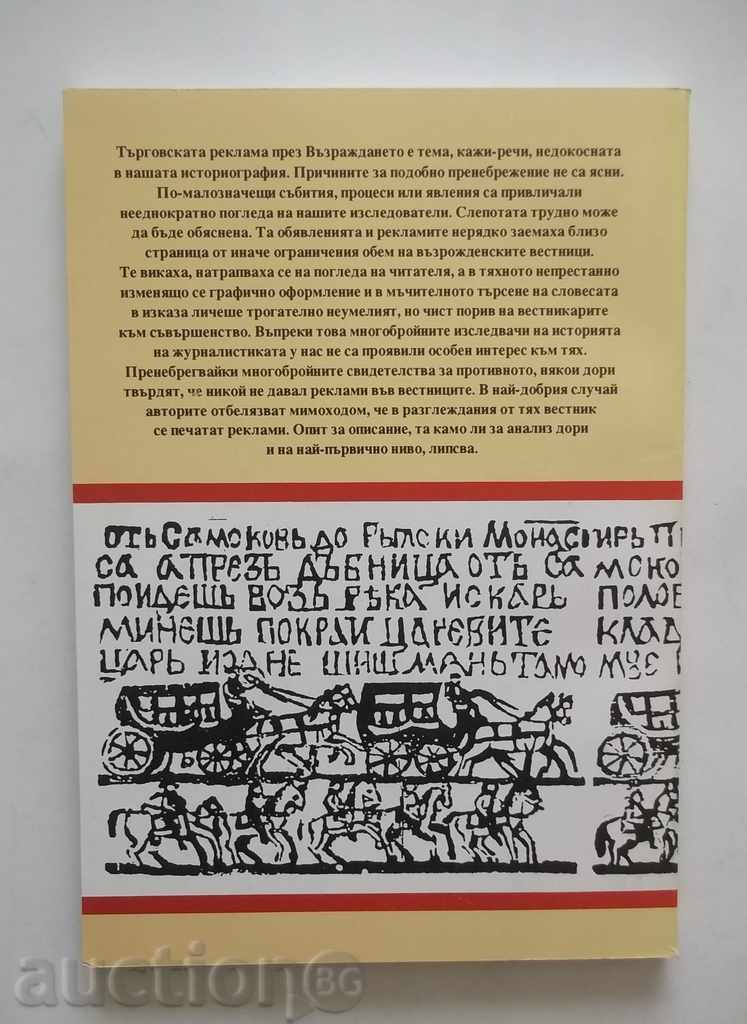 Търговската реклама през Възраждането е тема, кажи-речи, недокосната
в нашата историография. Причините за подобно пренебрежение не са ясни.
По-малозначещи събития, процеси или явления са привличали
нееднократно погледа на нашите изследователи. Слепотата трудно може
да бъде обяснена. Та обявленията и рекламите нерядко заемаха близо
страница от иначе ограничения обем на възрожденските вестници.
Те викаха, натрапваха се на погледа на читателя, а в тяхното непрестанно
изменящо се графично оформление и в мъчителното търсене на словесата
в изказа личеше трогателно неумелият, но чист порив на вестникарите
към съвършенство. Въпреки това многобройните изследвачи на историята
на журналистиката у нас не са проявили особен интерес към тях.
Пренебрегвайки многобройните свидетелства за противното, някои дори
твърдят, че никой не давал реклами във вестниците. В най-добрия случай
авторите отбелязват мимоходом, че в разглеждания от тях вестник
се печатат реклами. Опит за описание, та камо ли за анализ дори
и на най-първично ниво, липсва.
отъ Самоковь до Рылски Монастирь П
са апрезъ дъбница отъ са мско
поидешь возъ река искарь полов
минешь покраи царевите клад
царь иоане шишмань тамо мꙋс
auctionBG